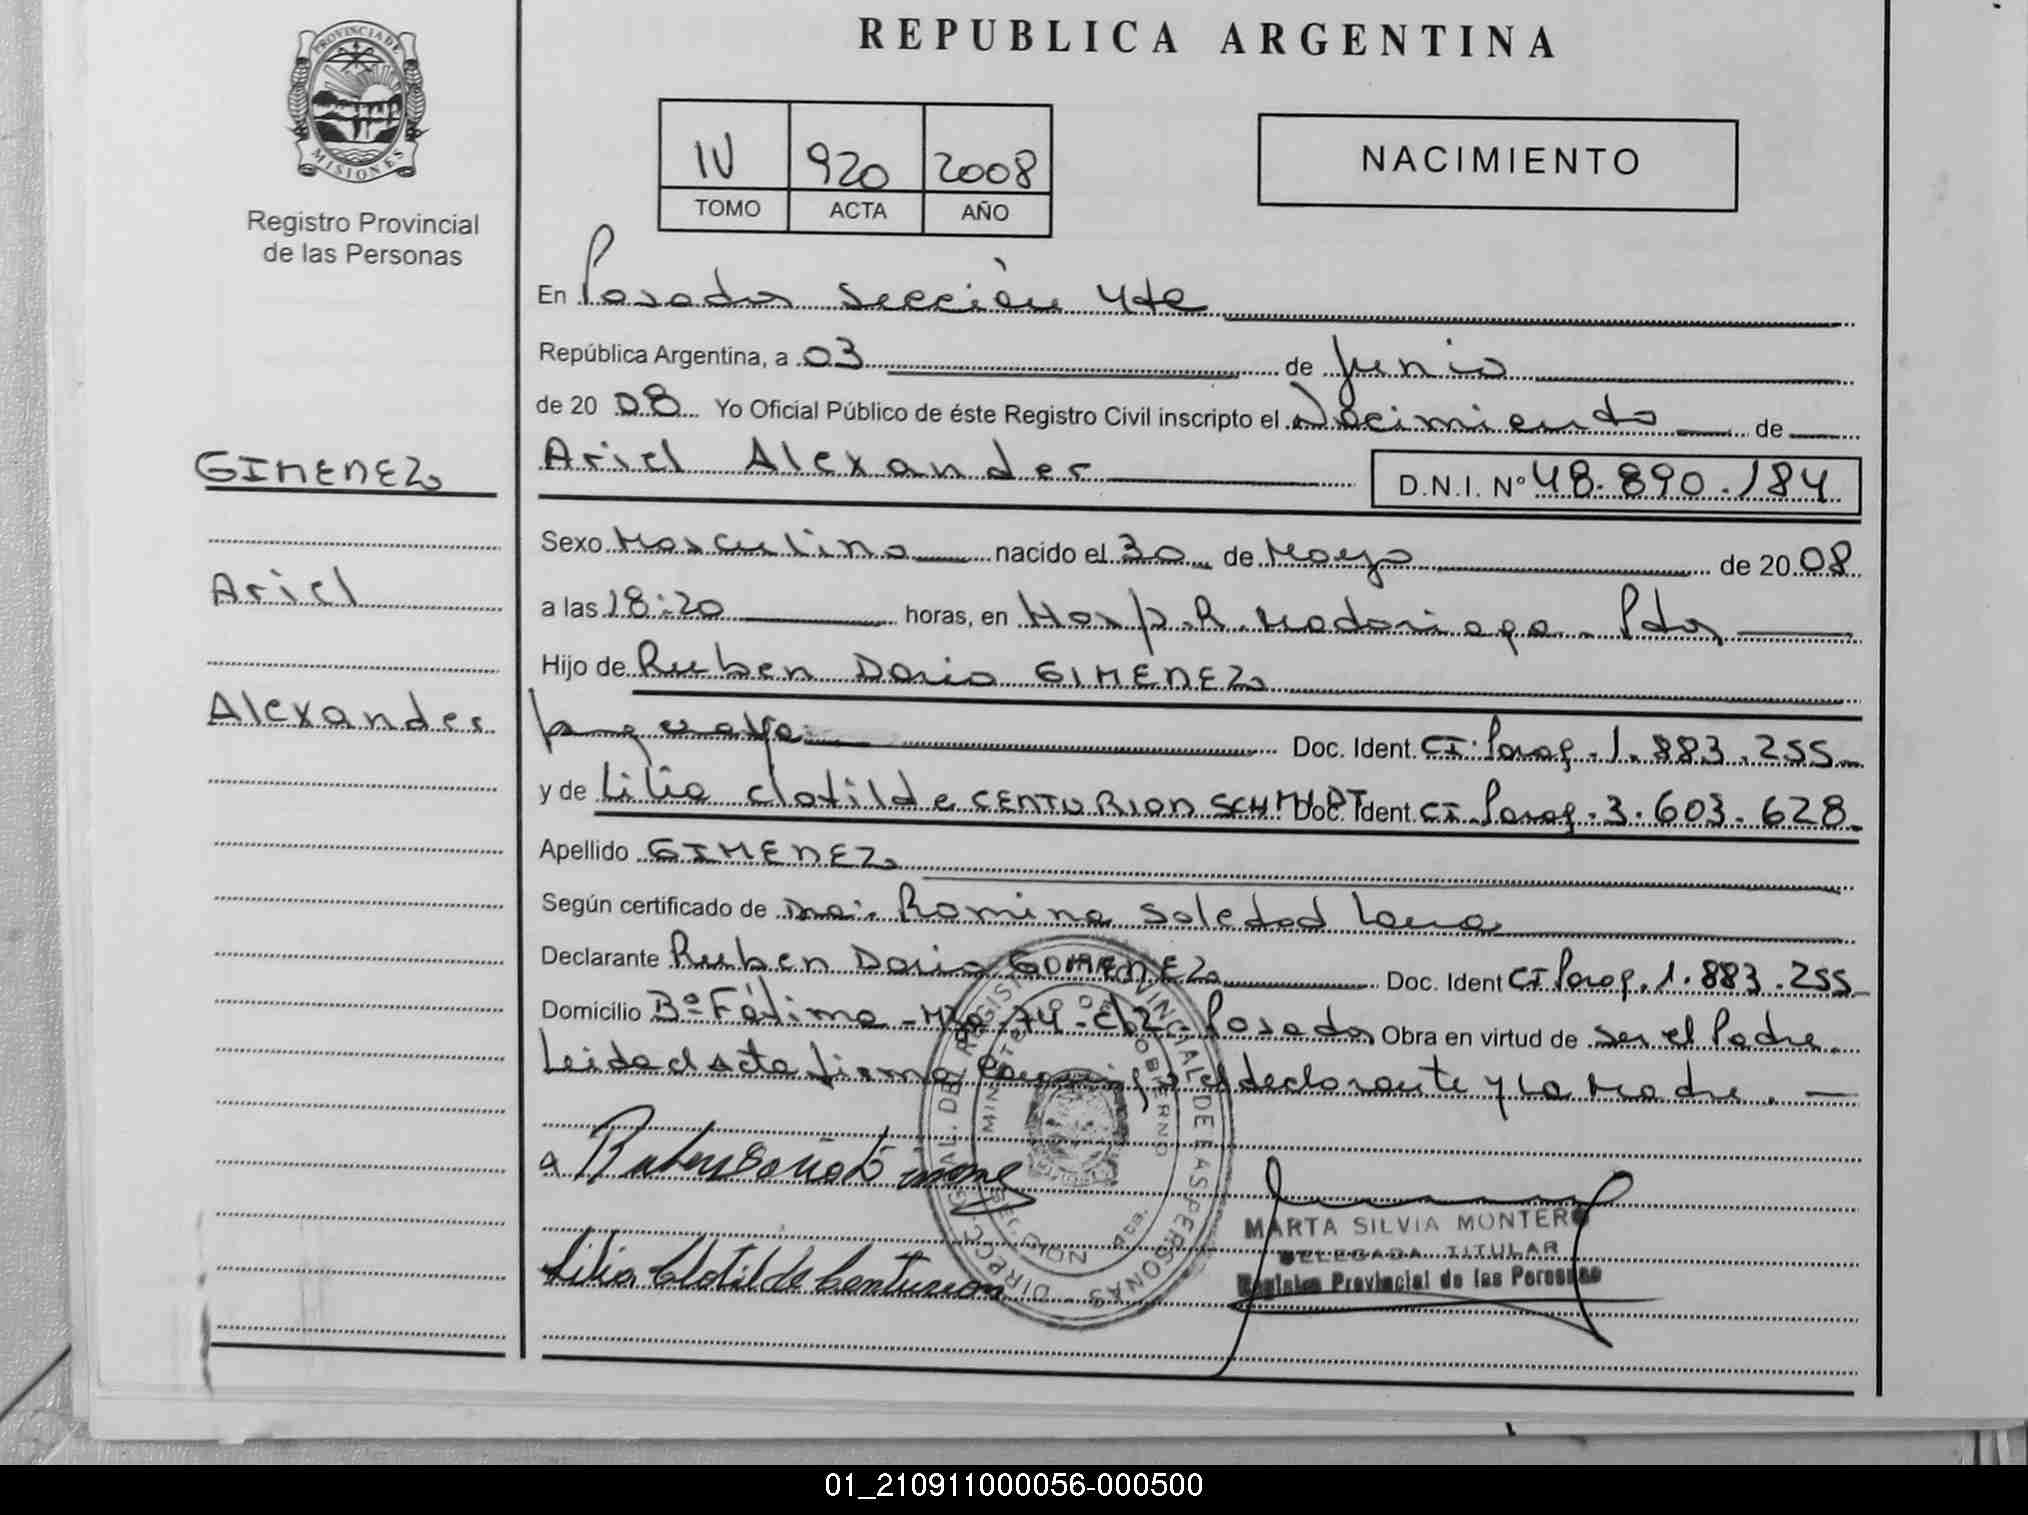 REPUBLICA ARGENTINA
PROVINCIA DE
MISIONES
Registro Provincial
de las Personas
IV 920 2008
TOMO ACTA AÑO
NACIMIENTO
En Posadas sección 4ta
República Argentina, a 03 de Junio
de 2008 Yo Oficial Público de éste Registro Civil inscripto el Nacimiento de
Ariel Alexander D.N.I. Nº 48.890.184
GIMENEZ
Ariel
Alexander
Sexo Masculino nacido el 30 de Mayo de 2008
a las 18:20 horas, en Hosp. R. Madariaga - Pdas
Hijo de Ruben Dario GIMENEZ
Doc. Ident. CI. Parag. 1.883.255
y de Lilia Clotilde CENTURION SCHMIDT Doc. Ident. CI. Parag. 3.603.628
Apellido GIMENEZ
Según certificado de Dra. Romina Soledad
Declarante Ruben Dario GIMENEZ Doc. Ident CI Parag. 1.883.255
Domicilio Bº Fátima - Mza 74 - C/2 - Posadas Obra en virtud de ser el Padre.
Leida el acta firma el declarante y la Madre. -
Lilia Clotilde Centurion
MARTA SILVIA MONTERO
DELEGADA TITULAR
Registro Provincial de las Personas
01_210911000056-000500